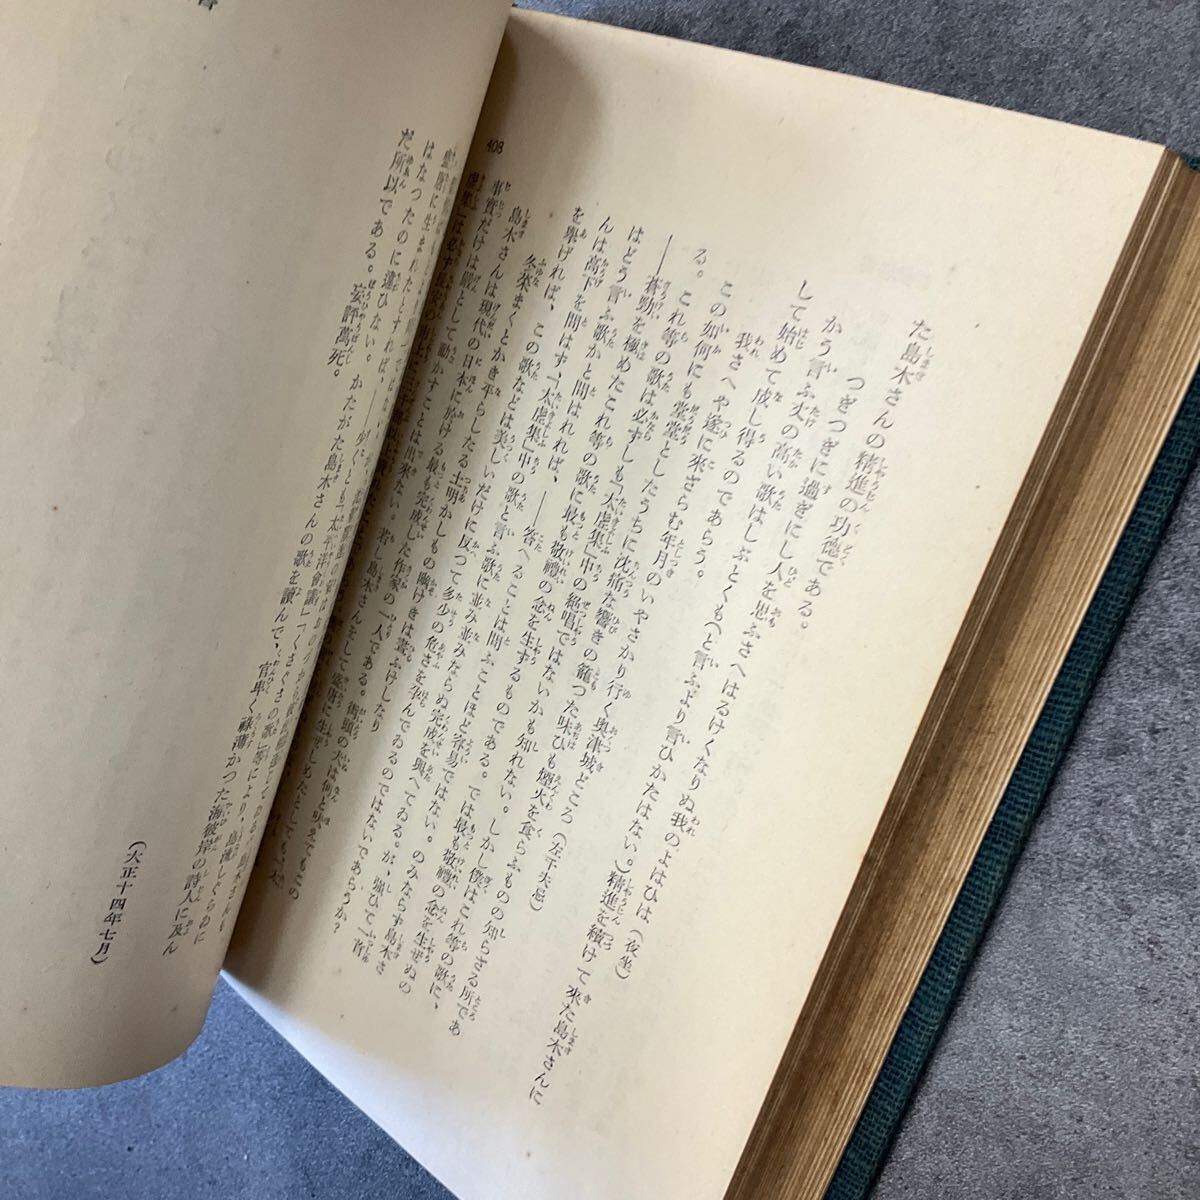 た島木さんの精進の功德である。
つぎつぎに過ぎにし人を思ふさへはるけくなりぬ我のよはひは（夜坐）
かう言ふ丈の高い歌はしぶとくも（と言ふより言ひかたはない。）精進を續けて來た島木さんに
して始めて成し得るのであらう。
我さへや遂に來ざらむ年月のいやさかり行く奥津城どころ（左千夫忌）
この如何にも堂堂としたうちに沈痛な響きの籠つた味ひも煙火を食らふものの知らざる所であ
る。これ等の歌は必ずしも「太虛集」中の絕唱ではないかも知れない。しかし僕はこれ等の歌に、
――蒼勁を極めたこれ等の歌に最も敬禮の念を生ずるものである。では最も敬禮の念を生ぜぬの
はどう言ふ歌かと問はれれば、――答へることは問ふことほど容易ではない。のみならず島木さ
んは高下を問はず、「太虛集」中の歌と言ふ歌に並み並みならぬ完成を與へてゐる。が、强ひて一首
を擧げれば、この歌などは美しいだけに反つて多少の危さを孕んでゐるのではないであらうか？
冬菜まくとかき平らしたる土明かしもの幽けきは晝ふけしなり
島木さんは現代の日本に於ける最も完成した作家の一人である。街頭の犬は何と吠えてもこの
事實だけは嚴として動かすことは出來ない。若し島木さんをして盛唐に生ぜしめたとしても、「太
虛集」は必ず
408
はなつたのに違ひない。――少くとも「太平洋會議」「くさぐさの歌」等により、
だ所以である。かたがた島木さんの歌を讀んで、官卑く祿薄かつた海彼岸の詩人に及ん
妄評萬死。
（大正十四年七月）